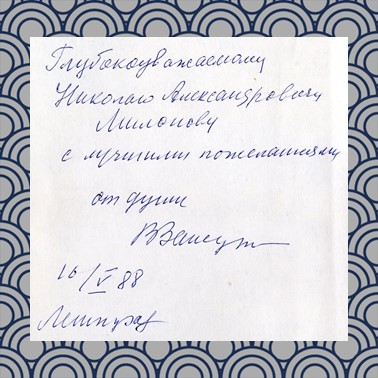 Глубокоуважаемому
Николаю Александровичу
Милонову
с лучшими пожеланиями
от души
16/V 88
Ленинград